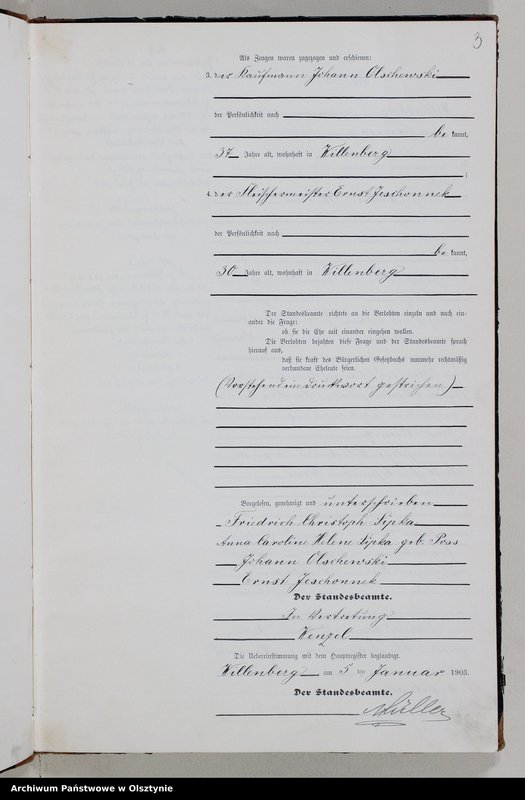 3
Als Zeugen waren zugezogen und erschienen:
3. der Kaufmann Johann Olschewski
der Persönlichkeit nach
be kannt,
37 Jahre alt, wohnhaft in Willenberg
;
4. der Fleischermeister Ernst Jeschonnek
der Persönlichkeit nach
be kannt,
30 Jahre alt, wohnhaft in Willenberg
Der Standesbeamte richtete an die Verlobten einzeln und nach ein-
ander die Frage:
ob sie die Ehe mit einander eingehen wollen.
Die Verlobten bejahten diese Frage und der Standesbeamte sprach
hierauf aus,
daß sie kraft des Bürgerlichen Gesetzbuchs nunmehr rechtmäßig
verbundene Eheleute seien.
(Vorstehend ein Druckwort gestrichen)
Vorgelesen, genehmigt und unterschrieben
Friedrich Christoph Sipka
Anna Caroline Helene Sipka geb. Poss
Johann Olschewski
Ernst Jeschonnek
Der Standesbeamte.
In Vertretung
Wenzel
Die Uebereinstimmung mit dem Hauptregister beglaubigt.
Willenberg am 5 ten Januar 1903.
Der Standesbeamte.
Müller
Archiwum Państwowe w Olsztynie